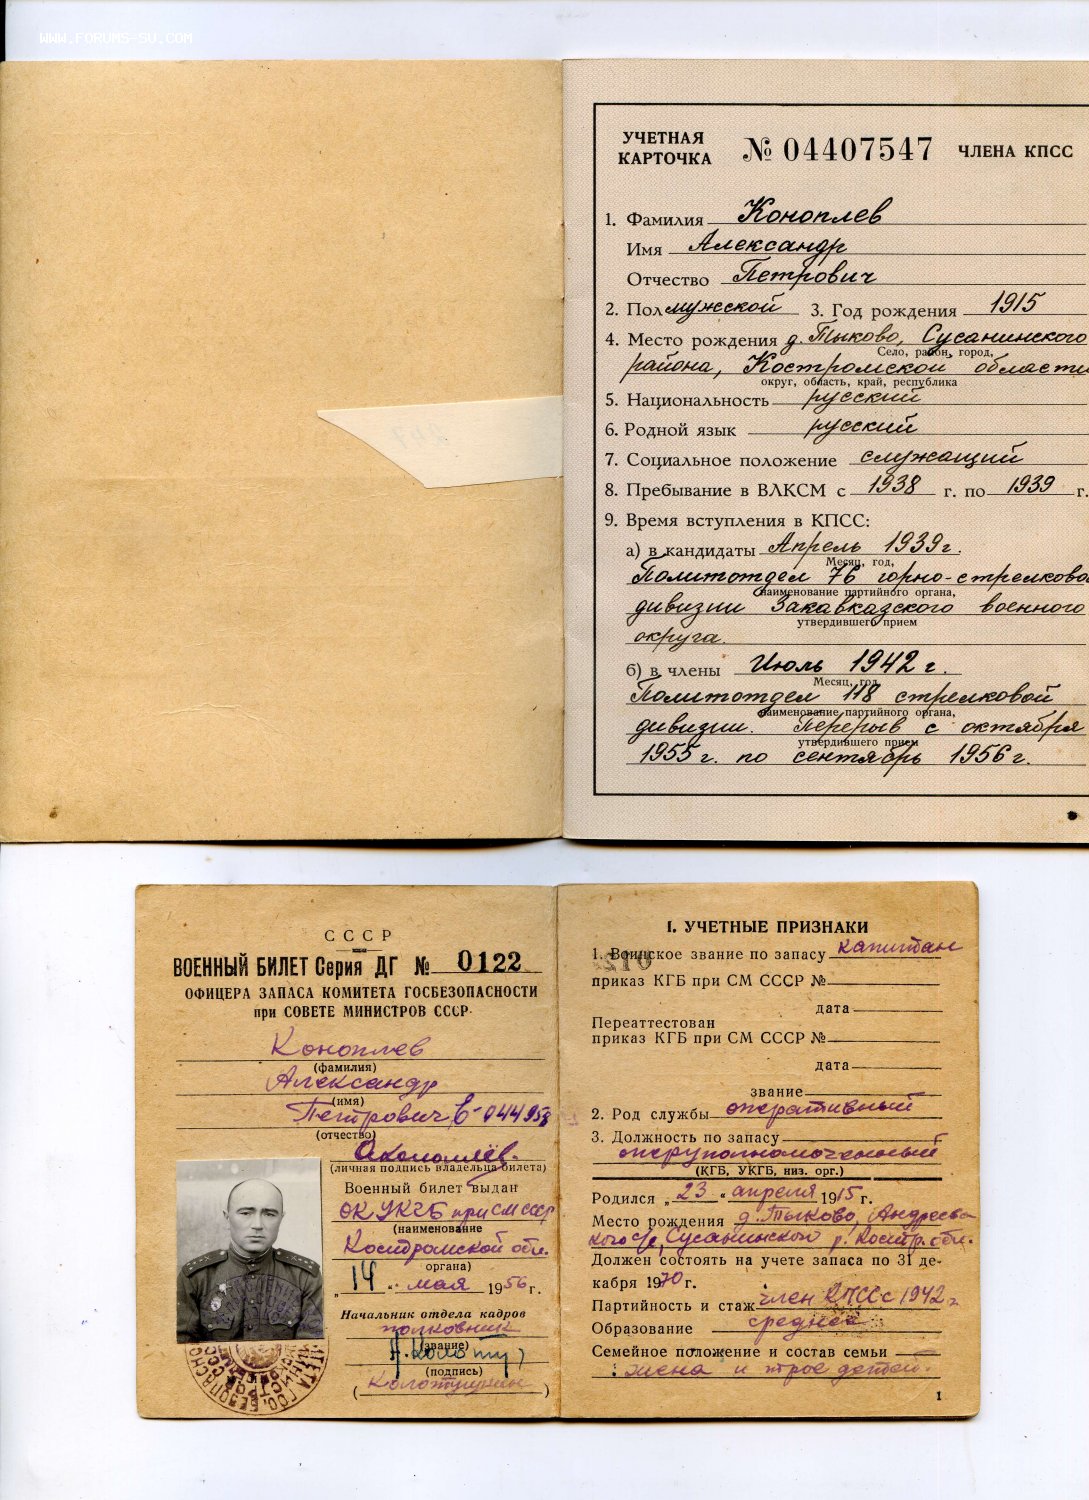 WWW.FORUMS-SU.COM
УЧЕТНАЯ КАРТОЧКА № 04407547 ЧЛЕНА КПСС
1. Фамилия Коноплев
Имя Александр
Отчество Петрович
2. Пол мужской 3. Год рождения 1915
4. Место рождения д. Тыково, Сусанинского
Село, район, город,
района, Костромской области
округ, область, край, республика
5. Национальность русский
6. Родной язык русский
7. Социальное положение служащий
8. Пребывание в ВЛКСМ с 1938 г. по 1939 г.
9. Время вступления в КПСС:
а) в кандидаты Апрель 1939 г.
Месяц, год,
Политотдел 76 горно-стрелково
наименование партийного органа,
дивизии Закавказского военного
утвердившего прием
округа.
б) в члены Июль 1942 г.
Месяц, год
Политотдел 118 стрелковой
наименование партийного органа,
дивизии. Перерыв с октября
утвердившего прием
1955 г. по сентябрь 1956 г.
СССР
ВОЕННЫЙ БИЛЕТ Серия ДГ № 0122
ОФИЦЕРА ЗАПАСА КОМИТЕТА ГОСБЕЗОПАСНОСТИ
при СОВЕТЕ МИНИСТРОВ СССР
Коноплев
(фамилия)
Александр
(имя)
Петрович Б-044958
(отчество)
(личная подпись владельца билета)
Военный билет выдан
ОК УКГБ при СМ СССР
(наименование
Костромской обл.
органа)
"14" мая 1956 г.
Начальник отдела кадров
полковник
(звание)
(подпись)
( )
I. УЧЕТНЫЕ ПРИЗНАКИ
1. Воинское звание по запасу капитан
приказ КГБ при СМ СССР №
дата
Переаттестован
приказ КГБ при СМ СССР №
дата
звание
2. Род службы оперативный
3. Должность по запасу
оперуполномоченный
(КГБ, УКГБ, низ. орг.)
Родился "23" апреля 1915 г.
Место рождения д. Тыково, Андреевс
кого с/с, Сусанинского р. Костр. обл.
Должен состоять на учете запаса по 31 де-
кабря 1970 г.
Партийность и стаж член КПСС с 1942 г.
Образование среднее
Семейное положение и состав семьи
жена и трое детей.
1